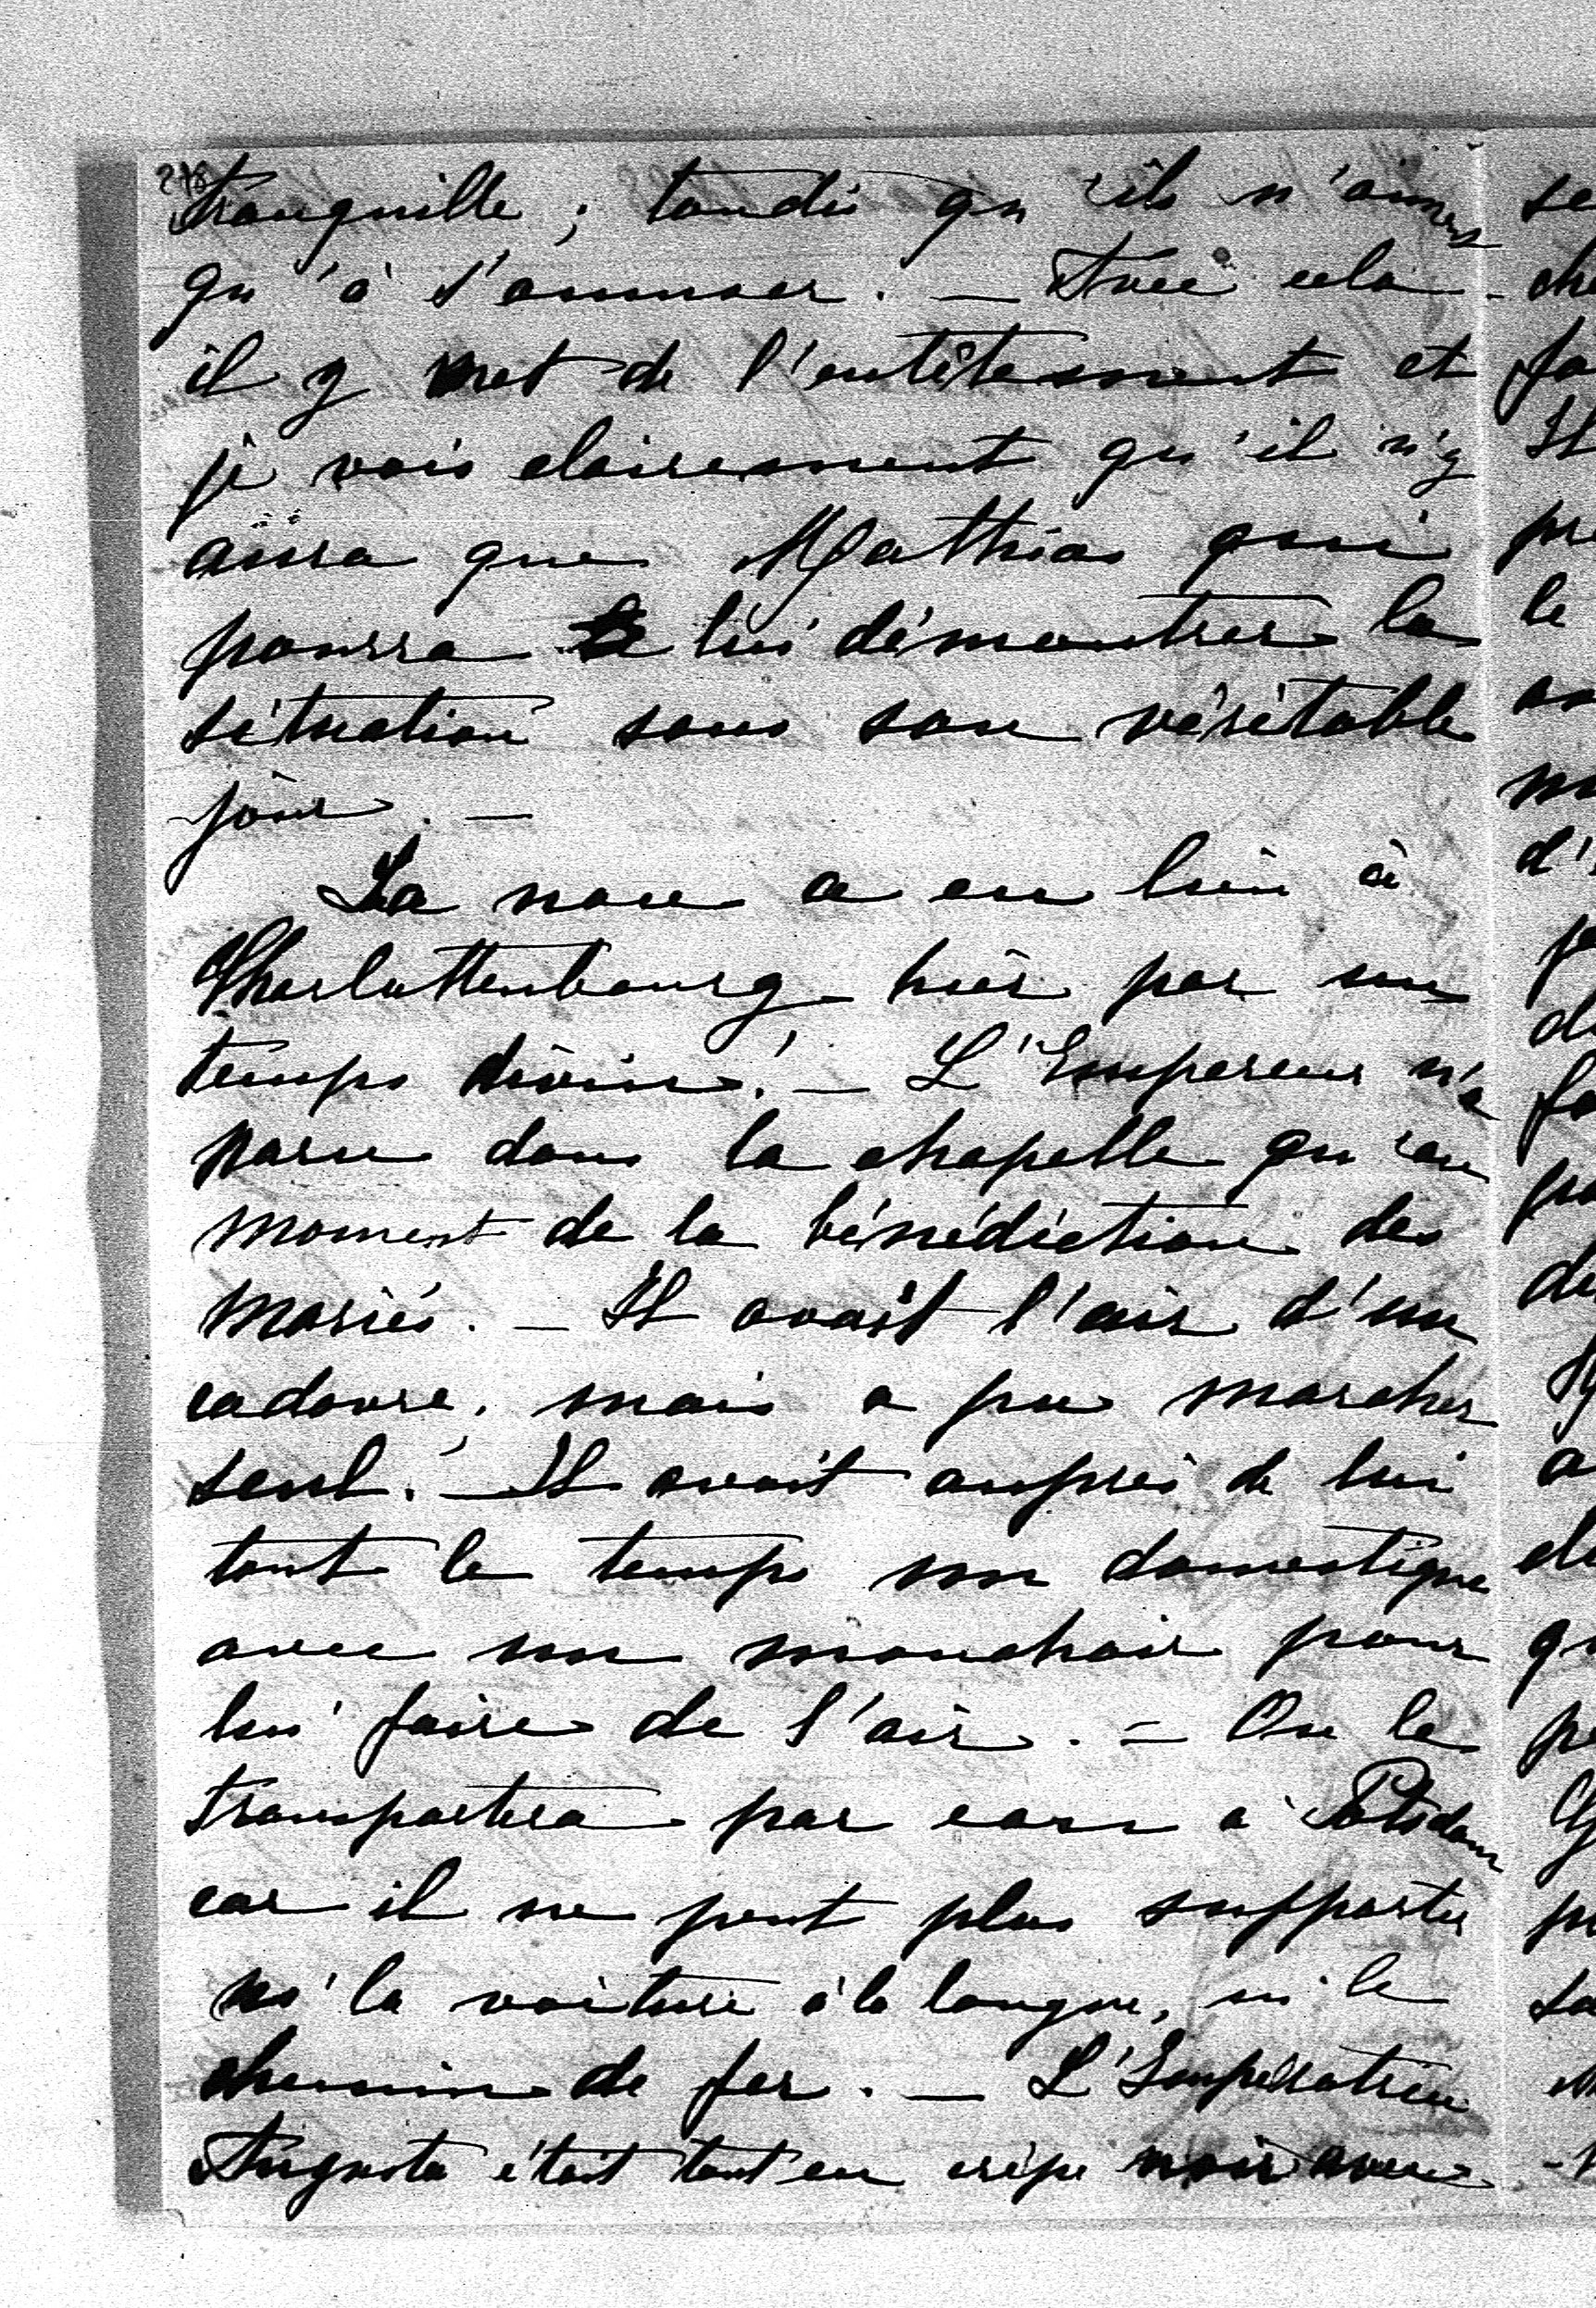 278
tranquille ; tandis qu'ils n'aiment
qu'à s'amuser. — Avec cela
il y met de l'entêtement et
je vois clairement qu'il n'y
aura que Mathias qui
pourra lui démontrer la
situation sous son véritable
jour. —
La noce a eu lieu à
Charlottenbourg hier par un
temps divin. — L'Empereur n'a
paru dans la chapelle qu'au
moment de la bénédiction des
mariés. — Il avait l'air d'un
cadavre, mais a pu marcher
seul. — Il avait auprès de lui
tout le temps un domestique
avec un mouchoir pour
lui faire de l'air. — On le
transportera par eau à Potsdam
car il ne peut plus supporter
ni la voiture à la longue, ni le
chemin de fer. — L'Impératrice
Augusta était tout en crêpe noir avec